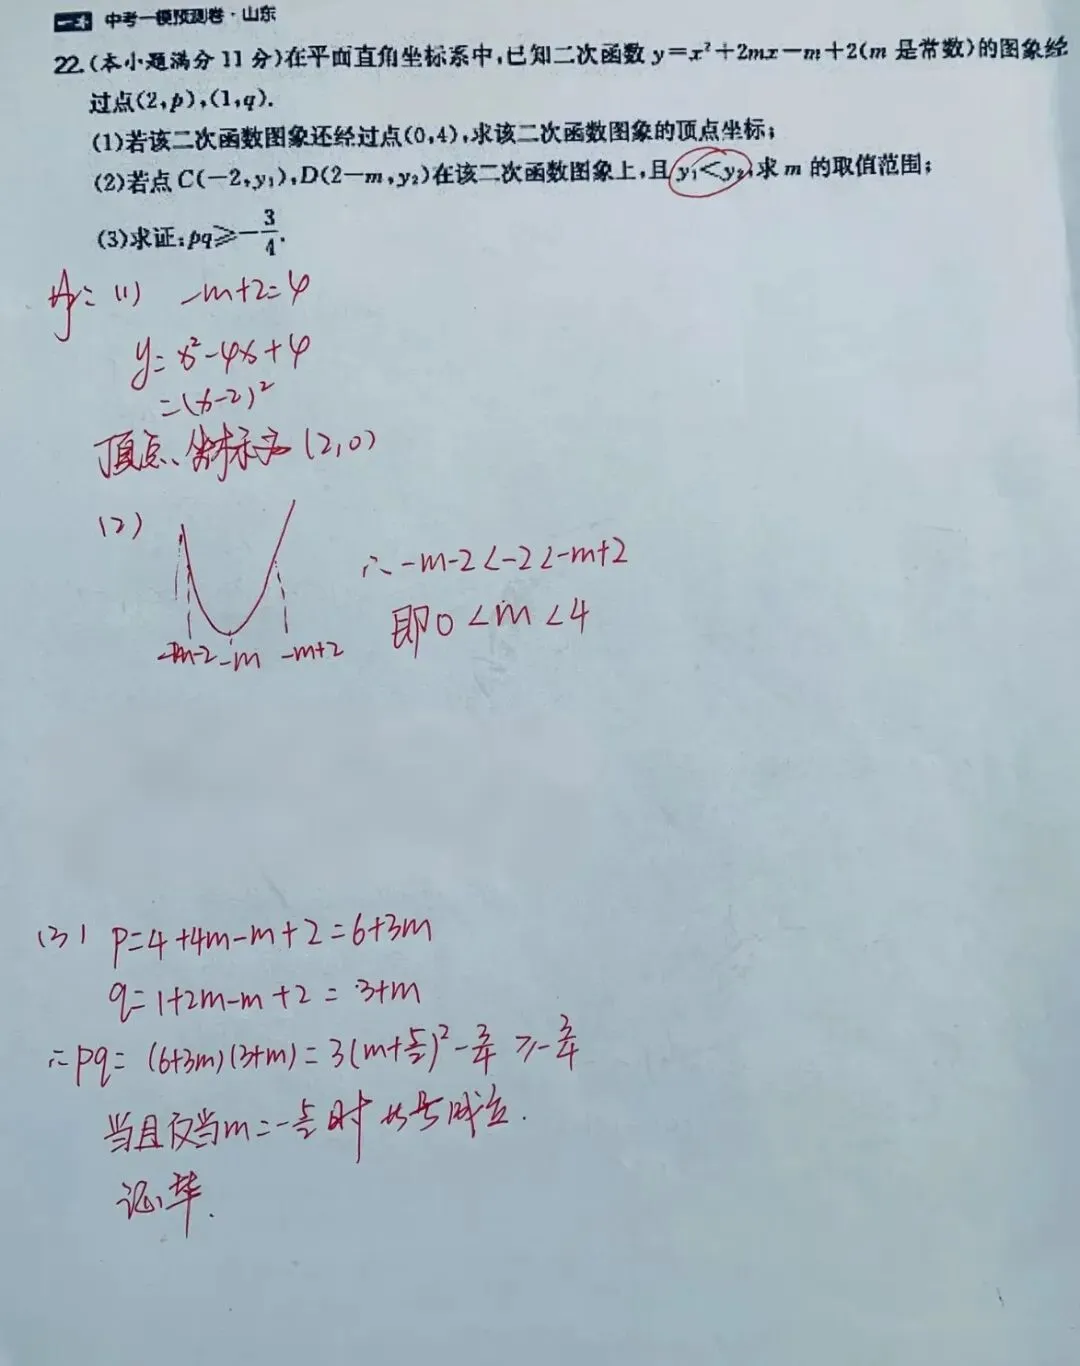 一本 中考一模预测卷·山东
22.(本小题满分 11 分)在平面直角坐标系中,已知二次函数 y=x²+2mx-m+2(m 是常数)的图象经
过点(2,p),(1,q).
(1)若该二次函数图象还经过点(0,4),求该二次函数图象的顶点坐标;
(2)若点 C(-2,y₁),D(2-m,y₂)在该二次函数图象上,且 y₁<y₂,求 m 的取值范围;
(3)求证:pq⩾-3/4.
(1) -m+2=4
y=x²-4x+4
=(x-2)²
顶点坐标为(2,0)
(2)
∴-m-2<-2<-m+2
即0<m<4
-m-2 -m -m+2
(3) p=4+4m-m+2=6+3m
q=1+2m-m+2=3+m
∴pq=(6+3m)(3+m)=3(m+5/2)²-3/4⩾-3/4
当且仅当m=-5/2时 等号成立.
证毕.